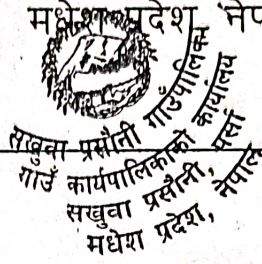 मधेश प्रदेश नेप
सखुवा प्रसौनी गाउँपालिका
गाउँ कार्यपालिकाको कार्यालय
सखुवा प्रसौनी, पर्सा
मधेश प्रदेश, नेपाल